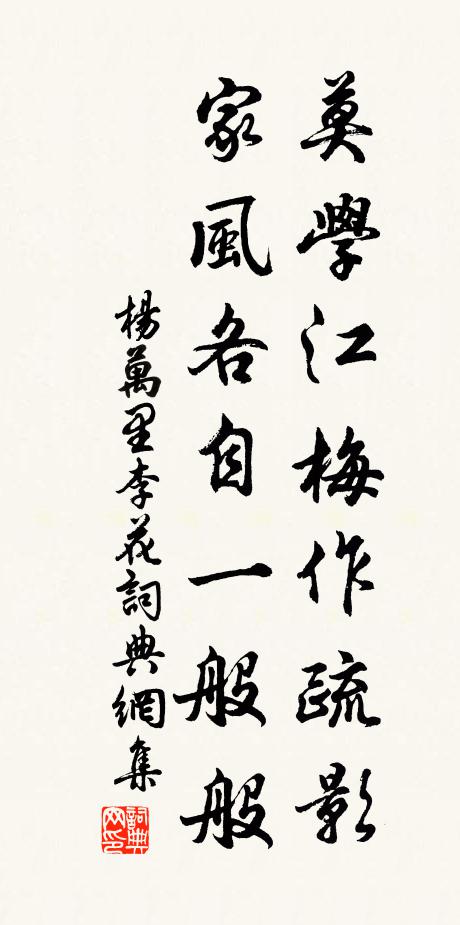 莫學江梅作疏影
家風各自一般般
楊萬里李花詞典網集
詞典网印